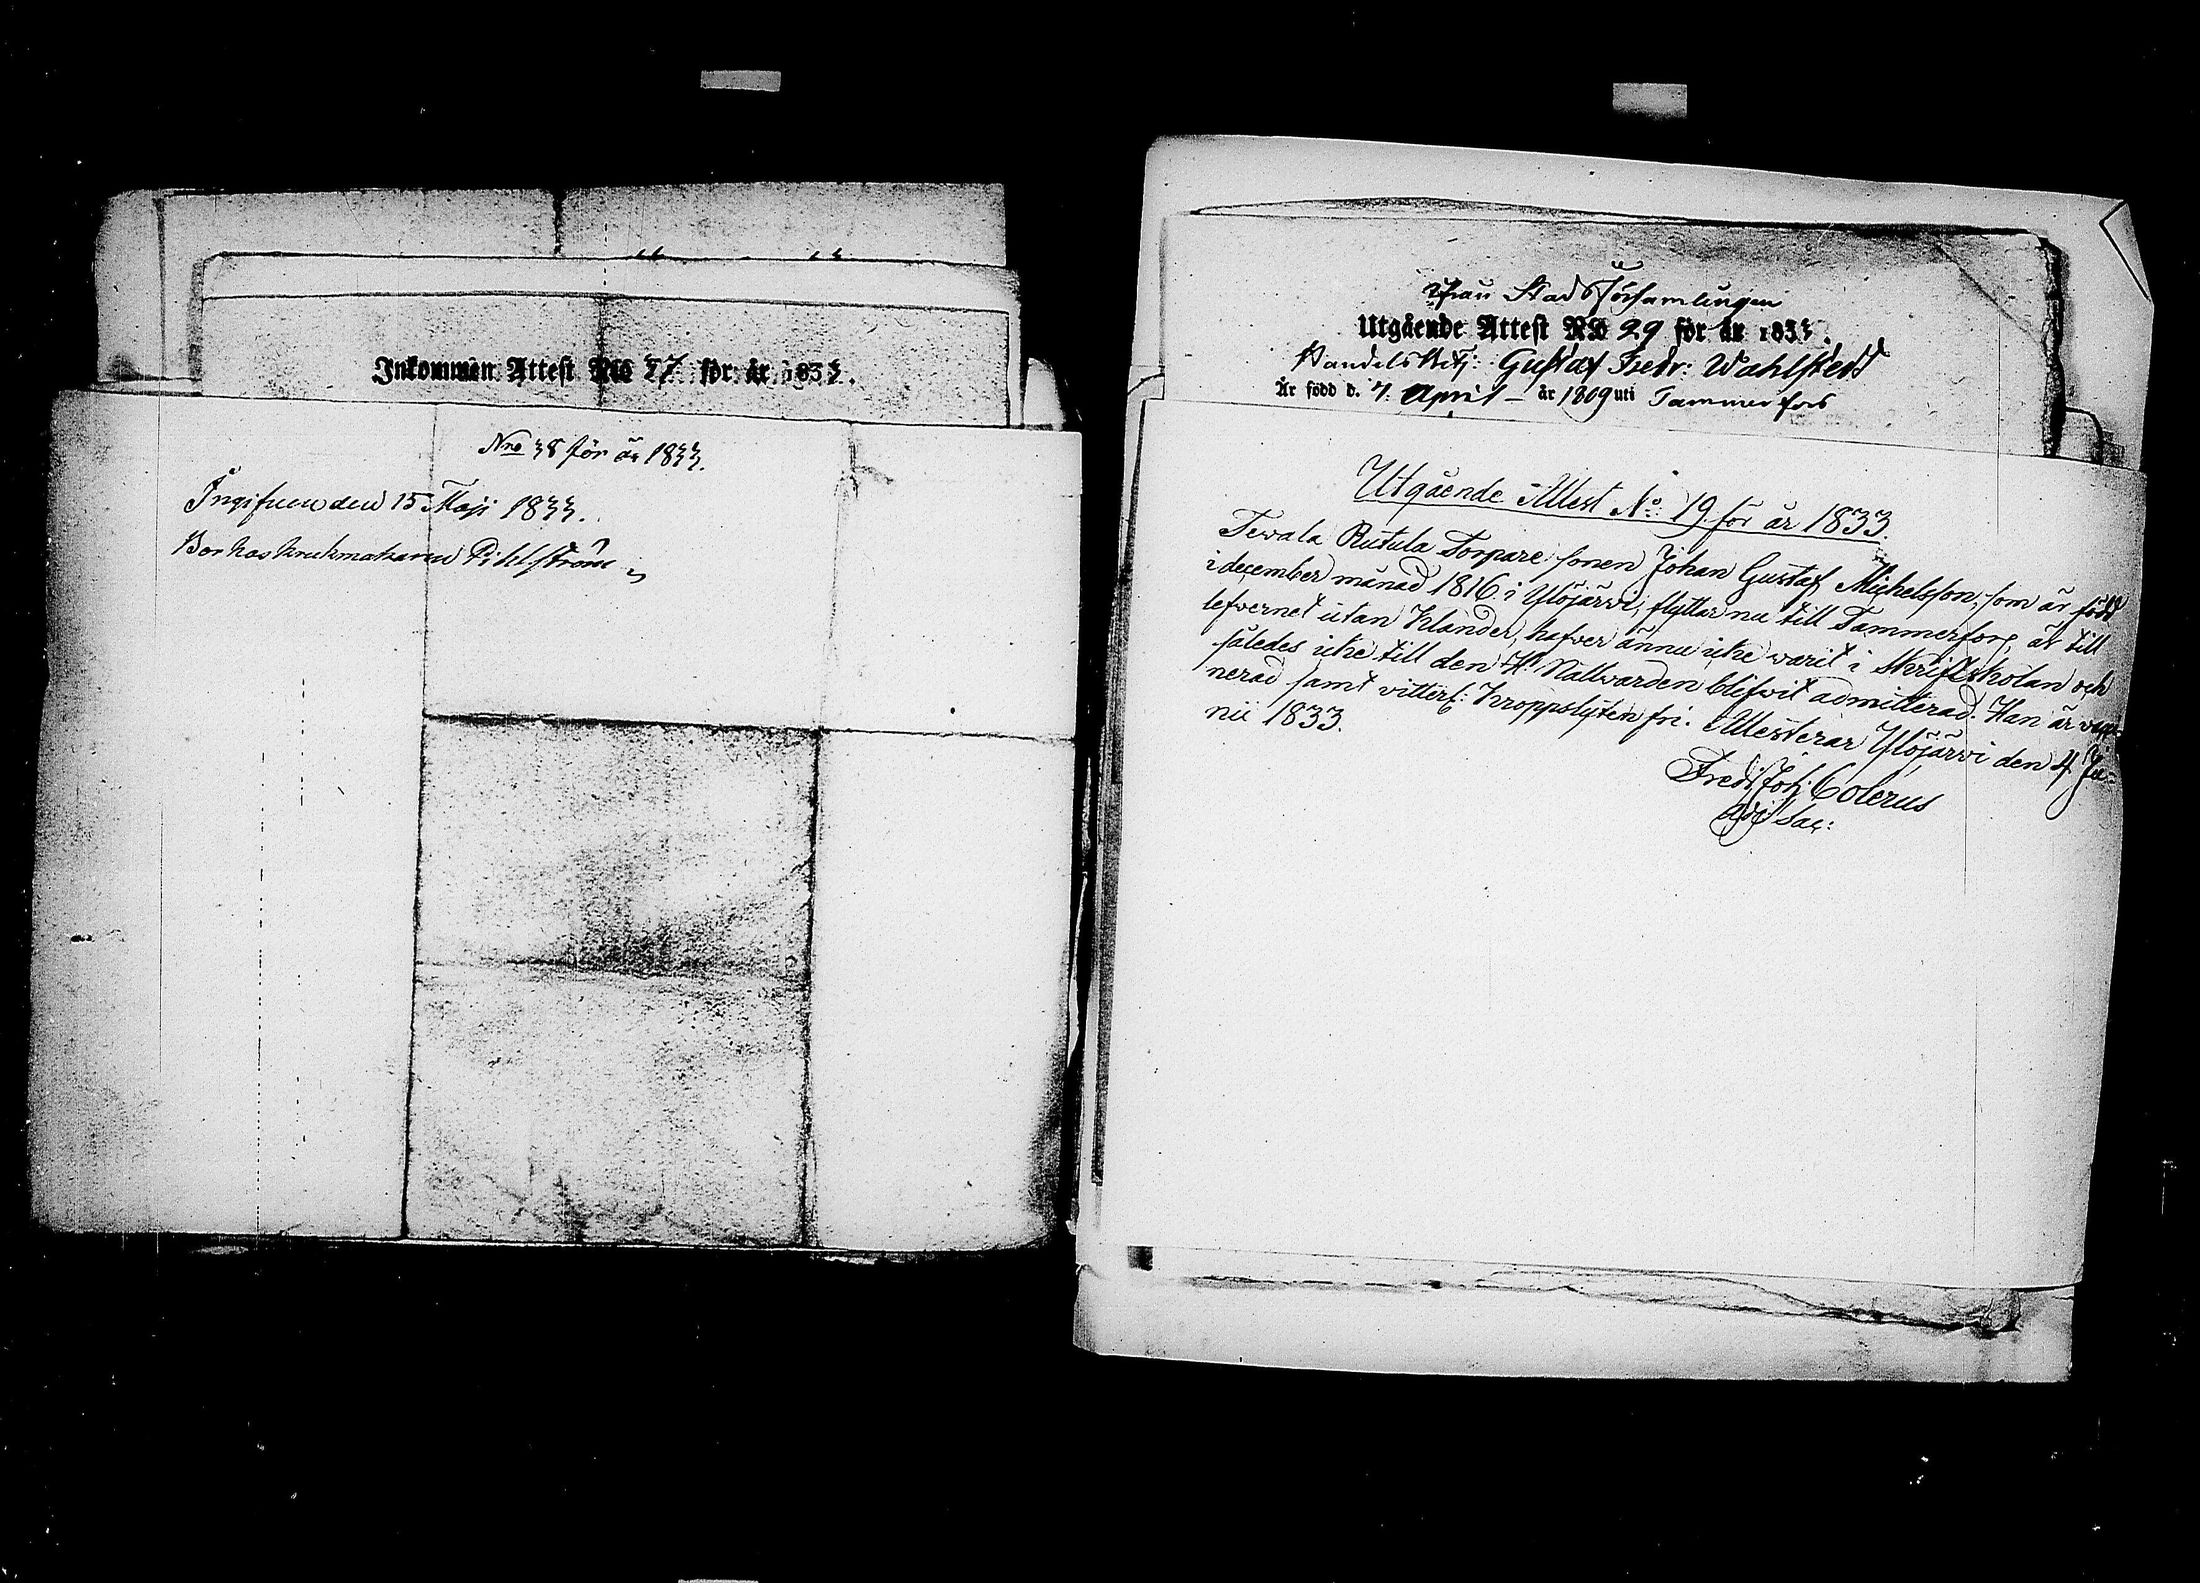 Inkommen Attest No 77 för år 1833.
Nro 38 för år 1833.
Ingifven den 15 Maji 1833.
Hos kakmakaren Pihlström
Ifrån Stads församlingen
Utgående Attest No 29 för år 1833.
Handels Betj: Gustaf Fedr: Wahlstedt
Är född d. 7. April – år 1809 uti Tammerfors
Utgående Attest No: 19. för år 1833.
Tevala Rutula Torpare sonen Johan Gustaf Michelsson, som är född
i december månad 1816 i Ylöjärvi, flyttar nu till Tammerfors, är till
lefvernet utan klander, hafver ännu icke warit i Skriftskolan och
således icke till den H. Nattvarden blifwit admitterad. Han är vacci-
nerad samt vitterl: kroppslyten fri. Attesterar Ylöjärvi den 4 Ju-
nii 1833.
Fred: Joh: Colerus
Adj: Sac: